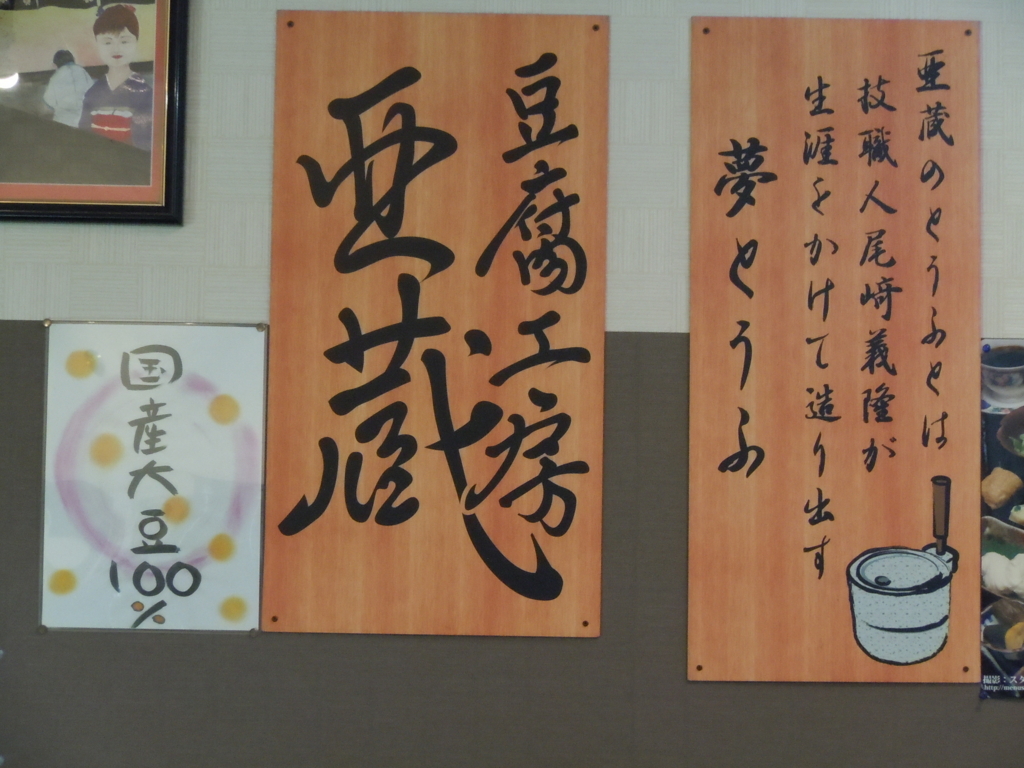 亜蔵のとうふとは
技職人尾﨑義隆が
生涯をかけて造り出す
夢とうふ
豆腐工房
亜蔵
国産大豆100%
撮影:スタ
http://memor